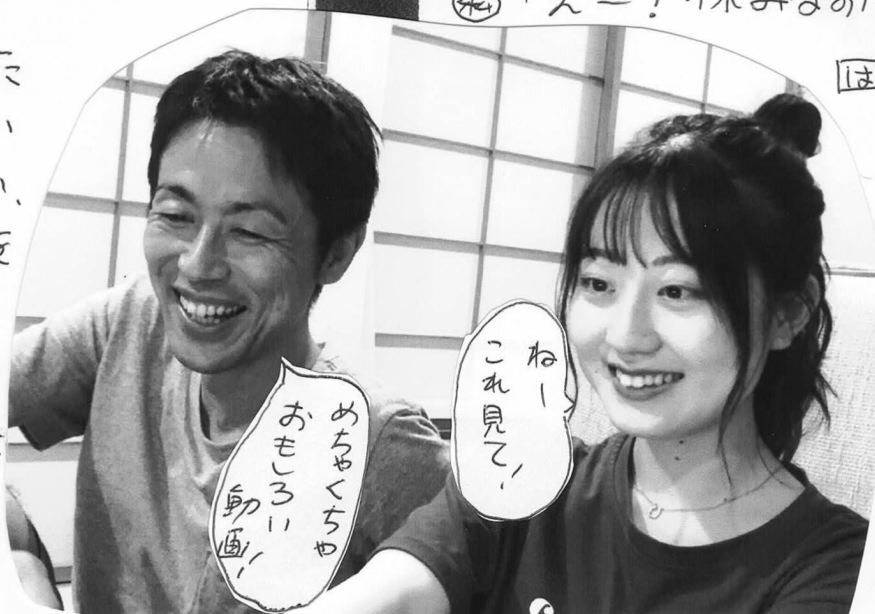 ねー
これ見て!
めちゃくちゃ
おもしろい
動画!
は